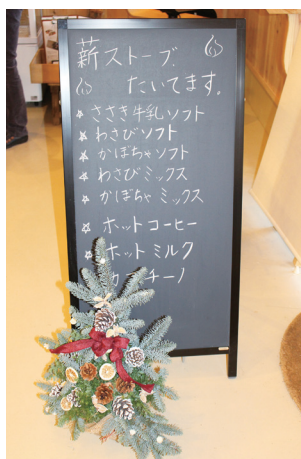 薪ストーブ.
たいてます.
☆ ささき牛乳ソフト
☆ わさびソフト
☆ かぼちゃソフト
☆ わさびミックス
☆ かぼちゃミックス
☆ ホットコーヒー
ホットミルク
カ チーノ